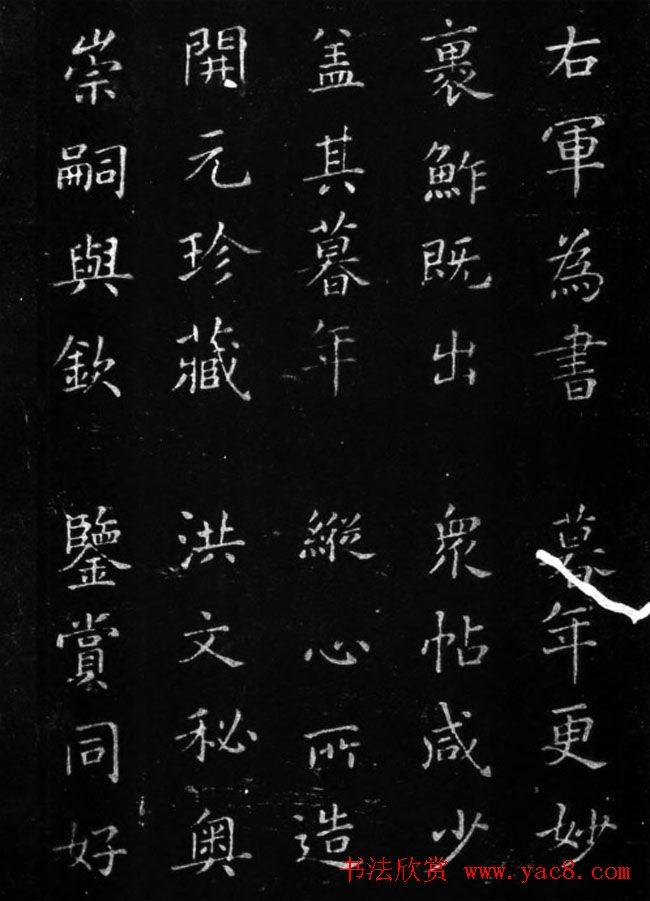 右軍為書 暮年更妙
裹鮓既出 衆帖咸少
盖其暮年 縱心所造
開元珍藏 洪文秘奥
崇嗣與欽 鑒賞同好
书法欣赏 www.yac8.com